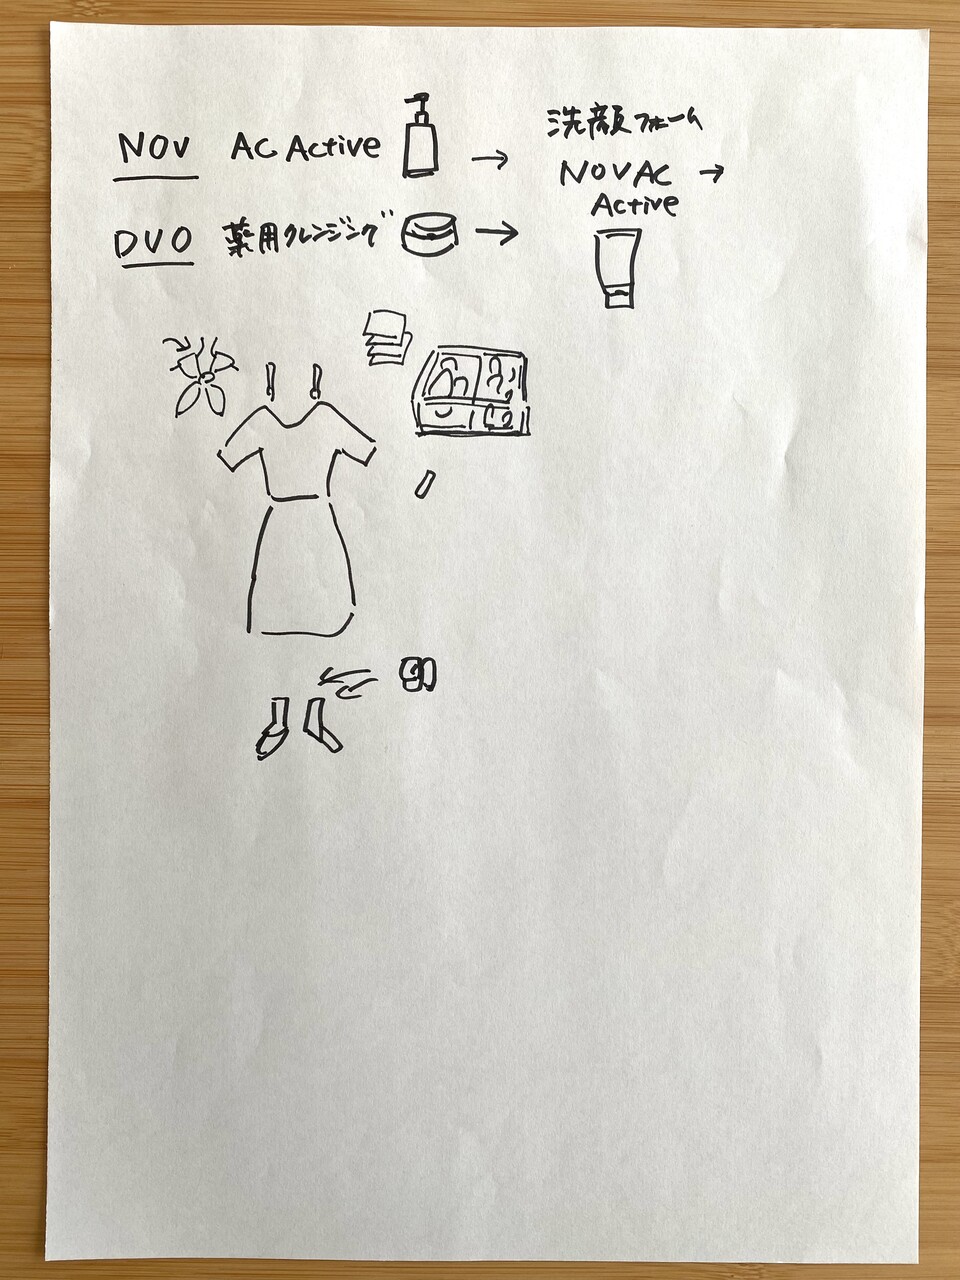 NOV AC Active →
DVO 薬用クレンジング →
洗顔フォーム
NOV AC →
Active